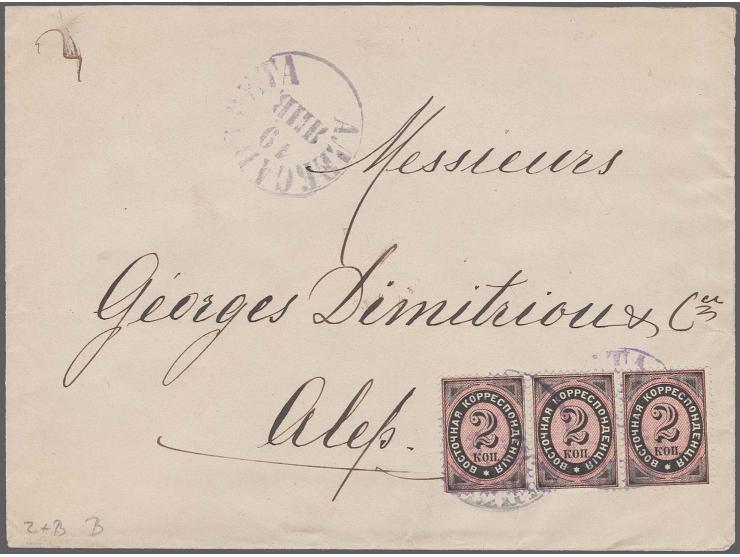 АЛЕКСАНДРЕТА
ЯНВ
19
Messieurs
Georges Dimitriou & Cie
Alep.
ВОСТОЧНАЯ КОРРЕСПОНДЕНЦІЯ
2
КОП
ВОСТОЧНАЯ КОРРЕСПОНДЕНЦІЯ
2
КОП
ВОСТОЧНАЯ КОРРЕСПОНДЕНЦІЯ
2
КОП
2+B B